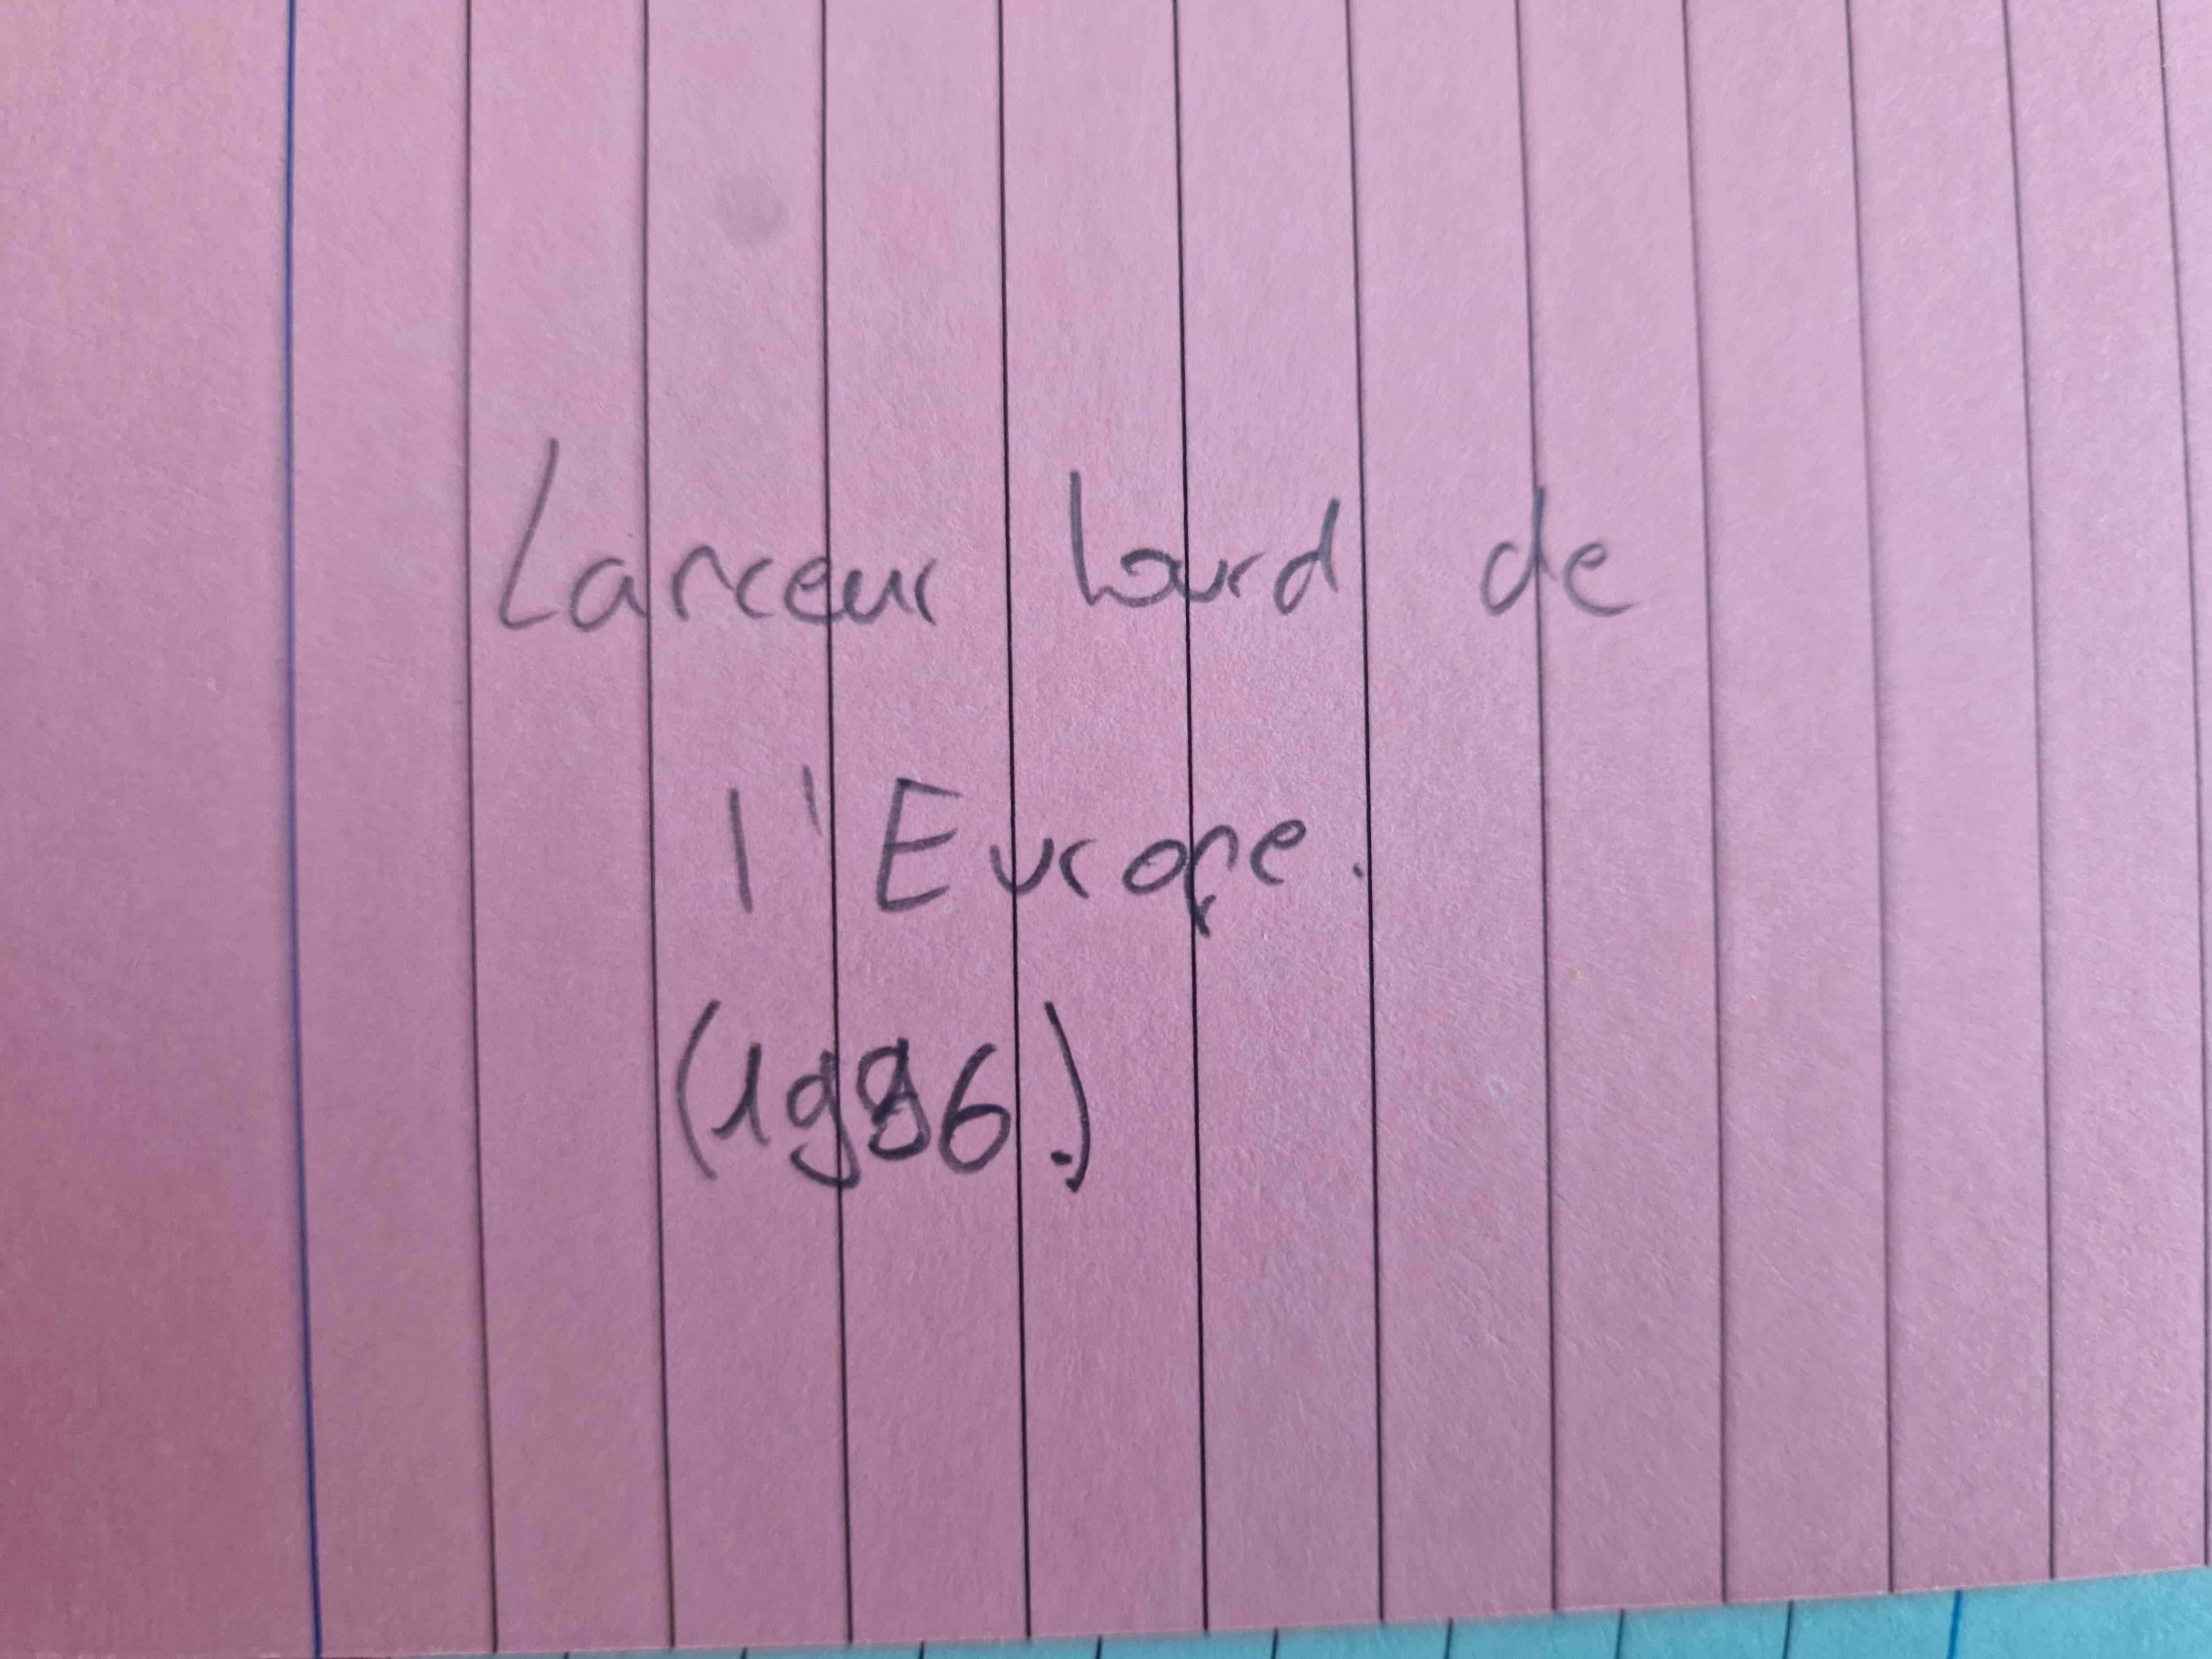 Lanceur lourd de
l'Europe.
(1996.)